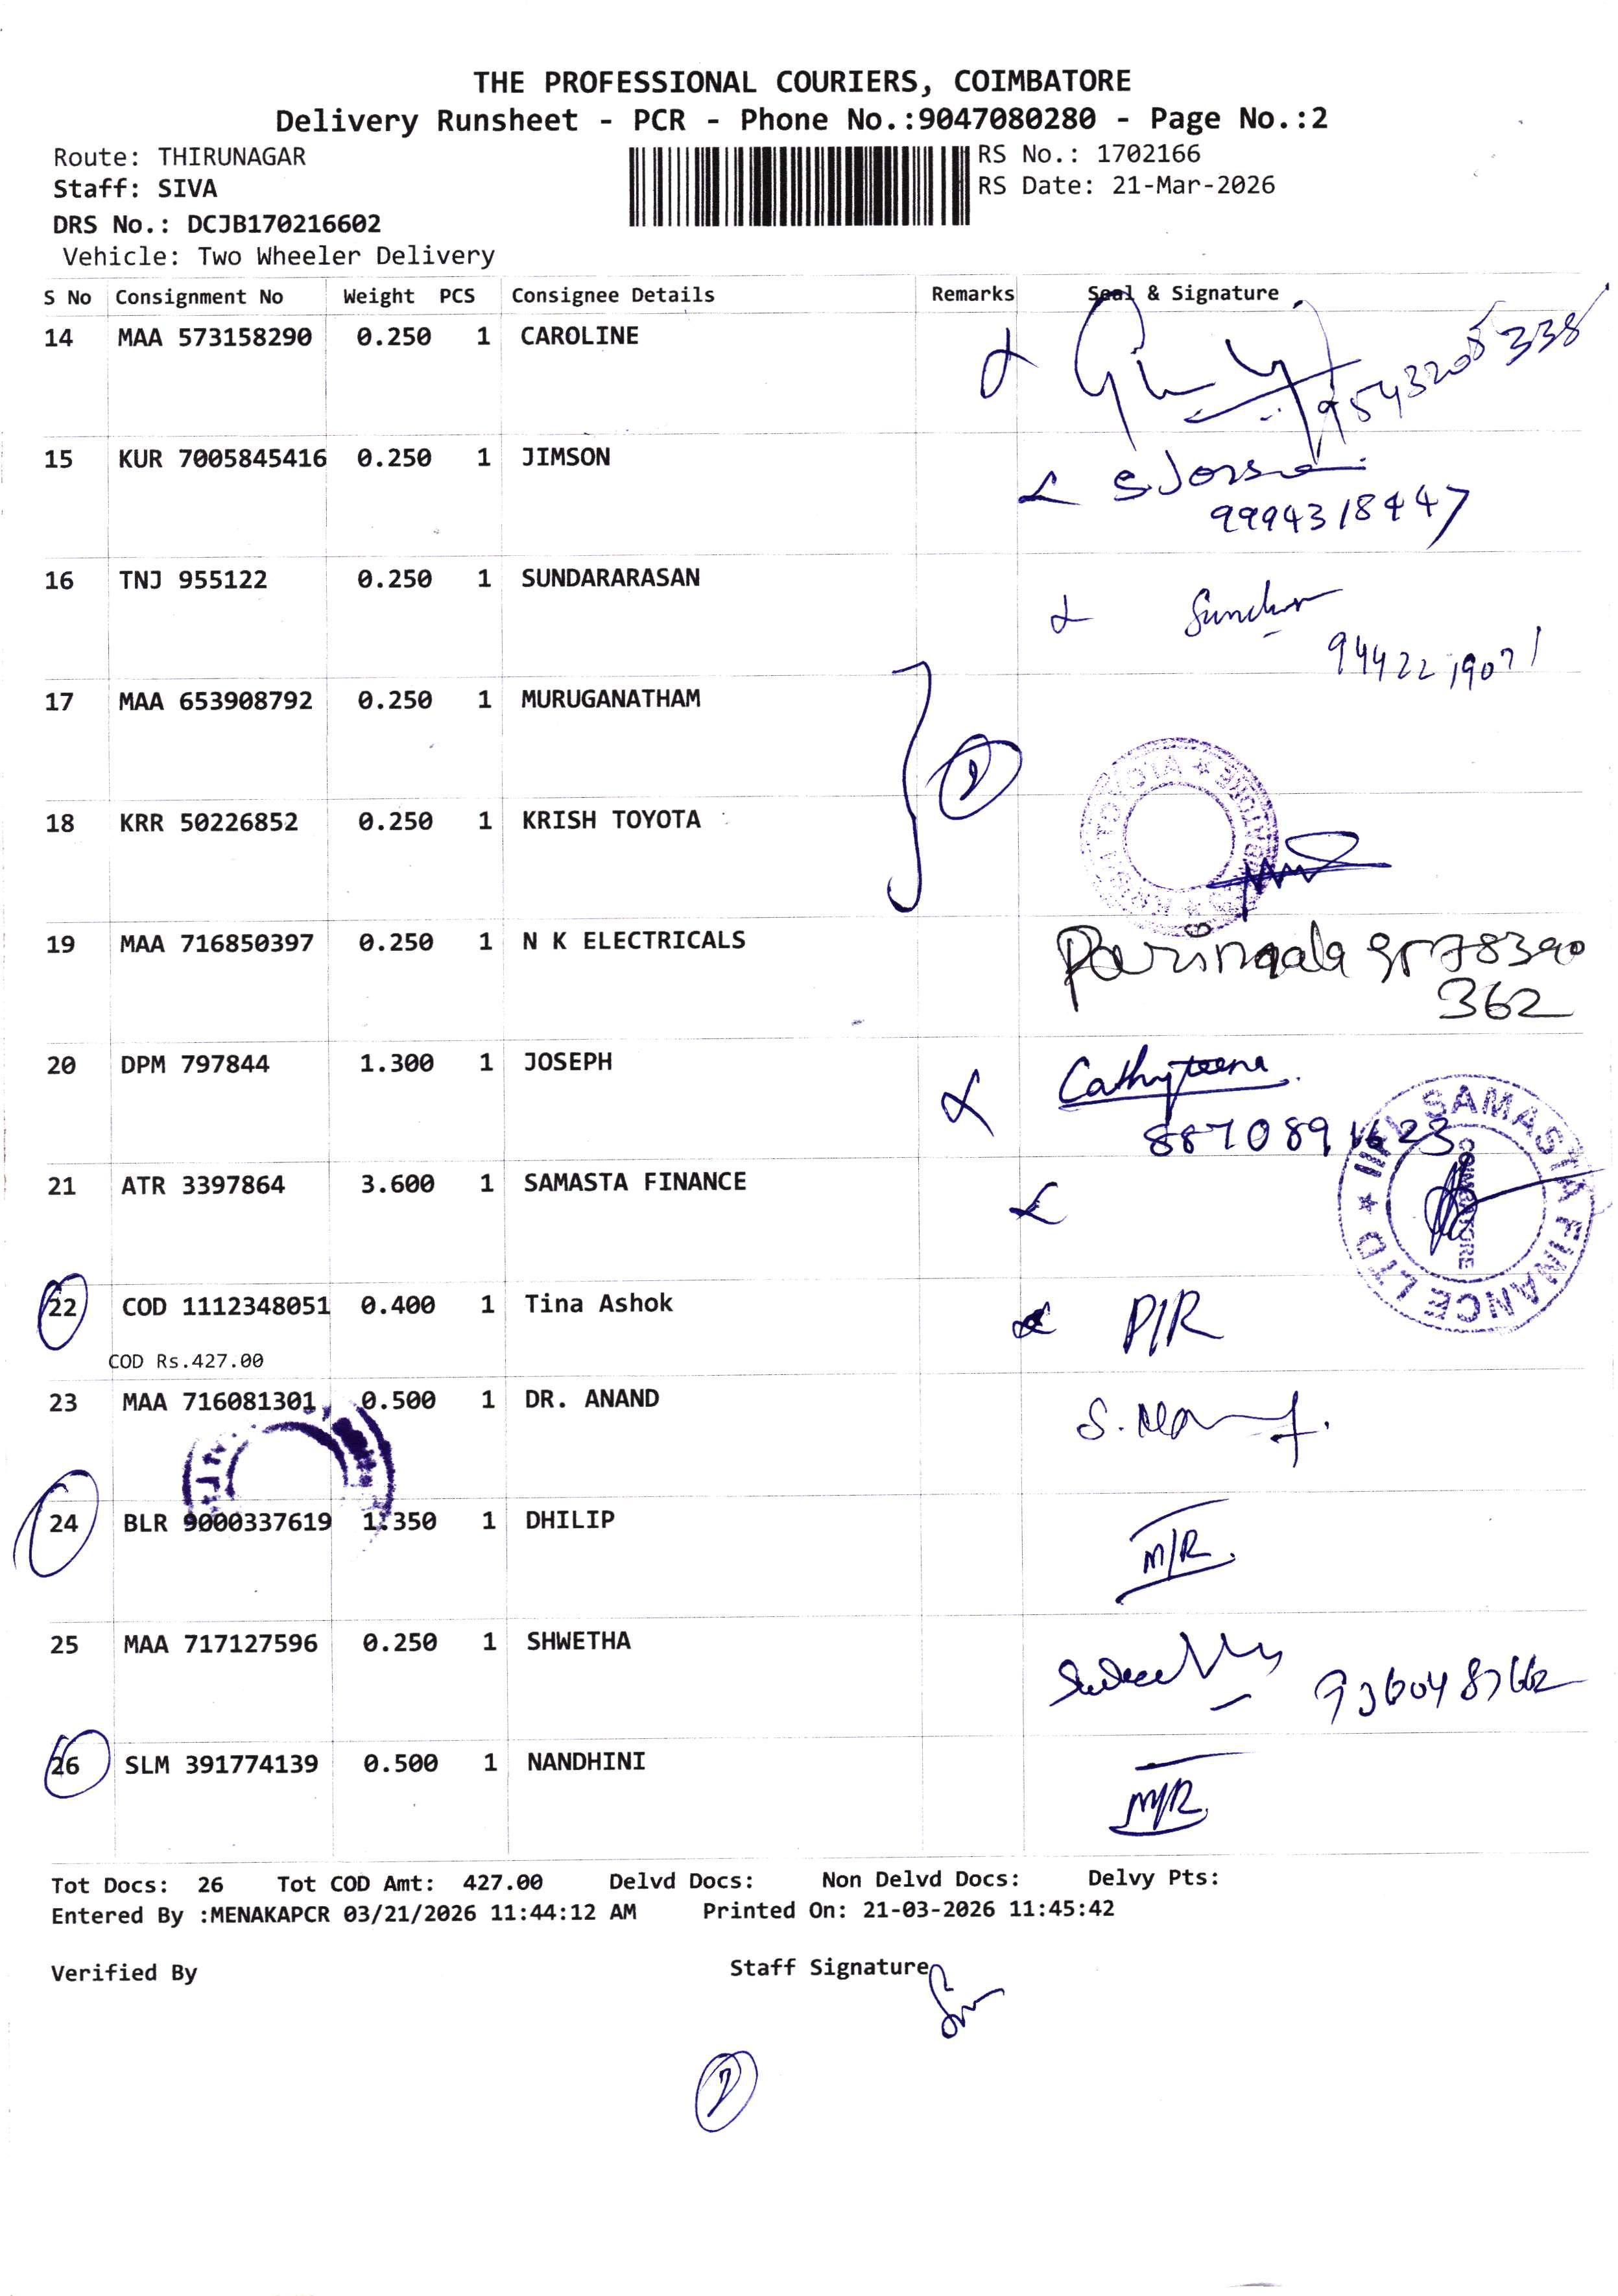 THE PROFESSIONAL COURIERS, COIMBATORE
Delivery Runsheet - PCR - Phone No.:9047080280 - Page No.:2
Route: THIRUNAGAR
RS No.: 1702166
Staff: SIVA
RS Date: 21-Mar-2026
DRS No.: DCJB170216602
Vehicle: Two Wheeler Delivery
S No Consignment No Weight PCS Consignee Details Remarks Seal & Signature
14 MAA 573158290 0.250 1 CAROLINE
9543208338
15 KUR 7005845416 0.250 1 JIMSON
9994318447
16 TNJ 955122 0.250 1 SUNDARARASAN
9442219071
17 MAA 653908792 0.250 1 MURUGANATHAM
18 KRR 50226852 0.250 1 KRISH TOYOTA
19 MAA 716850397 0.250 1 N K ELECTRICALS
362
20 DPM 797844 1.300 1 JOSEPH Cathyteena
8870891623
21 ATR 3397864 3.600 1 SAMASTA FINANCE
IIFL SAMASTA FINANCE LTD
COIMBATORE
22 COD 1112348051 0.400 1 Tina Ashok D/R
COD Rs.427.00
23 MAA 716081301 0.500 1 DR. ANAND
24 BLR 9000337619 1.350 1 DHILIP M/R
25 MAA 717127596 0.250 1 SHWETHA
26 SLM 391774139 0.500 1 NANDHINI M/R
Tot Docs: 26 Tot COD Amt: 427.00 Delvd Docs: Non Delvd Docs: Delvy Pts:
Entered By :MENAKAPCR 03/21/2026 11:44:12 AM Printed On: 21-03-2026 11:45:42
Verified By Staff Signature